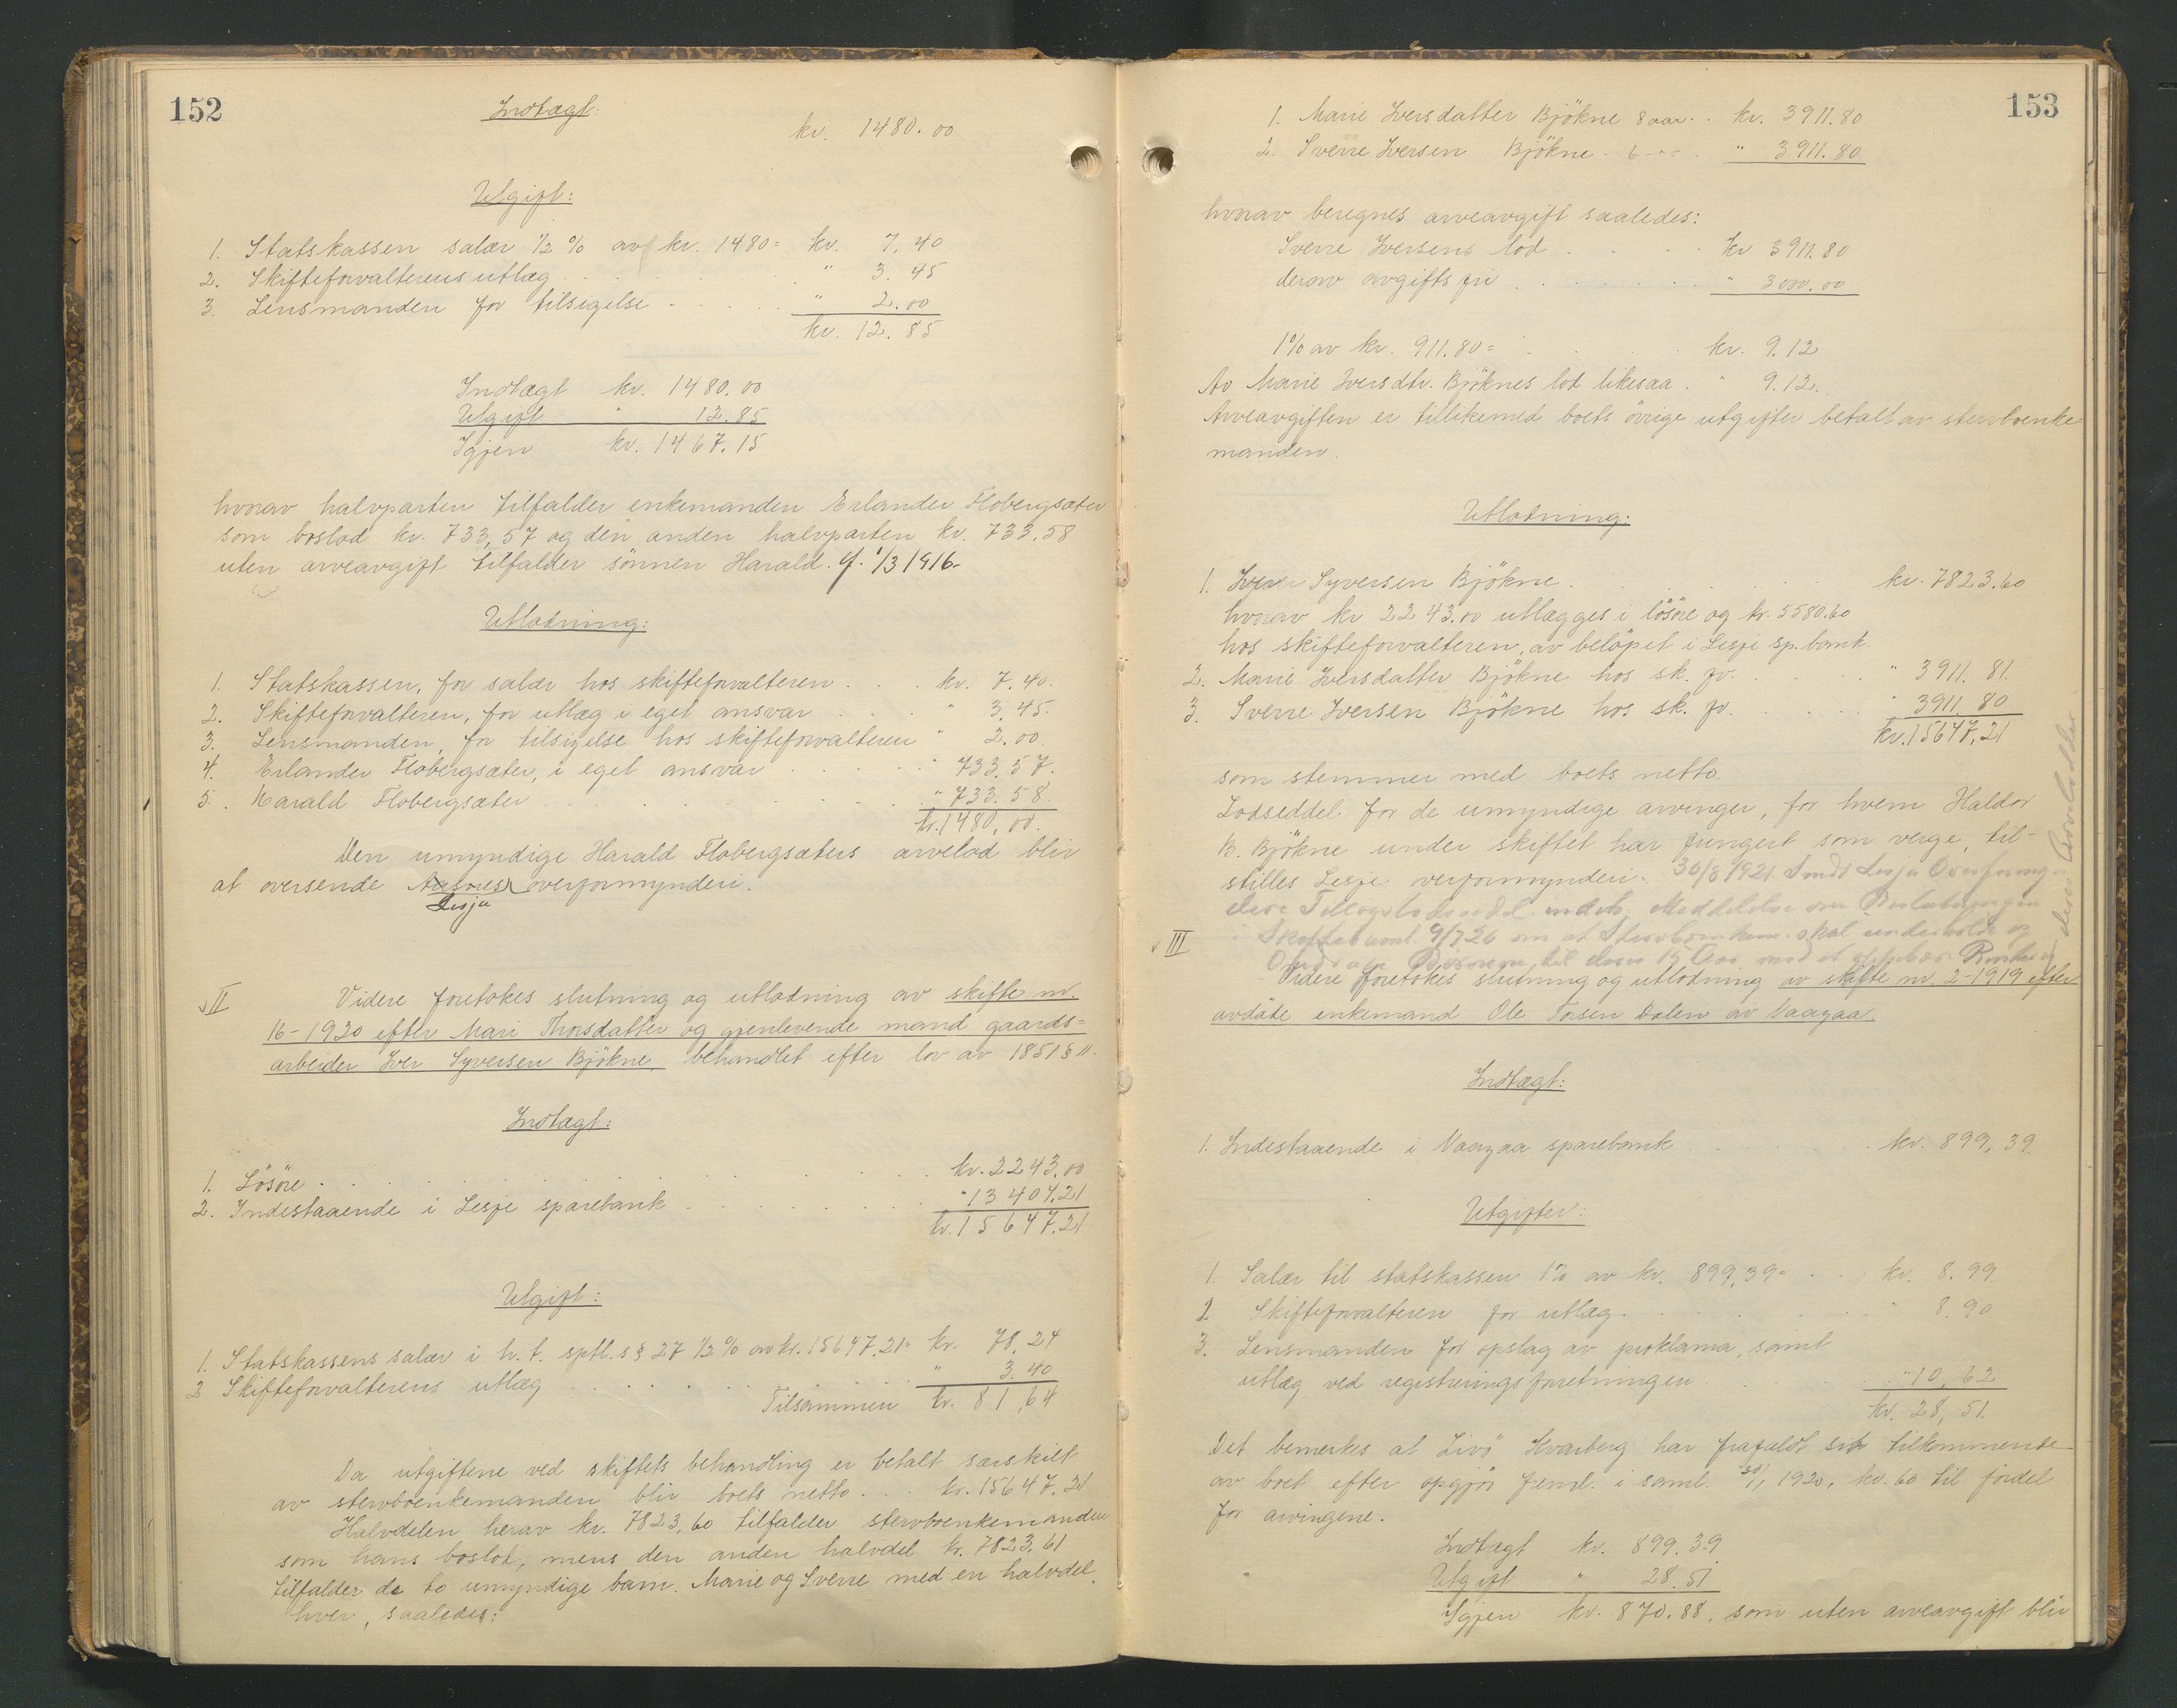 152
Indtægt:
kr. 1480.00
Utgift:
1. Statskassen salær ½ % av kr. 1480= kr. 7,40
2. Skifteforvalterens utlæg . . . " 3.45
3. Lensmanden for tilsigelse . . . " 2.00
kr. 12.85
Indtægt kr. 1480.00
Utgift " 12.85
Igjen kr. 1467.15
hvorav halvparten tilfalder enkemanden Erlander Flobergsæter
som boslod kr. 733,57 og den anden halvparten kr. 733.58
uten arveavgift tilfalder sönnen Harald. f. 1/3 1916.
Utlodning:
1. Statskassen, for salær hos skifteforvalteren . . . kr. 7.40.
2. Skifteforvalteren, for utlæg i eget ansvar . . " 3.45.
3. Lensmanden, for tilsigelse hos skifteforvalteren " 2.00.
4. Erlander Flobergsæter, i eget ansvar . . . " 733.57.
5. Harald Flobergsæter . . . " 733.58.
kr. 1480,00.
Den umyndige Harald Flobergsæters arvelod blir
at oversende Aasnes overformynderi.
Lesja
II Videre foretokes slutning og utlodning av skifte nr.
16-1920 efter Mari Thorsdatter og gjenlevende mand gaards=
arbeider Iver Syversen Bjökne, behandlet efter lov av 1851 § 11.
Indtægt:
1. Lösöre . . . kr. 2243,00
2. Indestaaende i Lesje sparebank . . . " 13404.21
kr. 15647.21
Utgift:
1. Statskassens salær i h. t. sptl. s § 27 ½ % av kr. 15647.21= kr. 78,24
2 Skifteforvalterens utlæg . . . " 3.40
Tilsammen kr. 81,64
Da utgiftene ved skiftets behandling er betalt særskilt
av stervboenkemanden blir boets netto . . . kr. 15647.21
Halvdelen herav kr. 7823,60 tilfalder stervboenkemanden
som hans boslod, mens den anden halvdel kr. 7823,61
tilfalder de to umyndige barn. Marie og Sverre med en halvdel
hver, saaledes:
153
1. Marie Iversdatter Bjökne 8 aar . . kr. 3911.80
2. Sverre Iversen Bjökne . 6 -"- . " 3911.80
hvorav beregnes arveavgift saaledes:
Sverre Iversens lod . . . Kr 3911.80
derav avgiftsfri . . . " 3000.00
1% av kr. 911.80= . . . kr. 9.12
Av Marie Iversdtr. Bjöknes lod likesaa . " 9.12.
Arveavgiften er tillikemed boets övrige utgifter betalt av stervboenke
manden.
Utlodning:
1. Iver Syversen Bjökne . . . kr. 7823.60
hvorav kr 2243.00 utlægges i lösöre og kr. 5580.60
hos skifteforvalteren, av belöpet i Lesje sp.bank.
2. Marie Iversdatter Bjökne hos sk. fv. . . . " 3911.81.
3. Sverre Iversen Bjökne hos sk. fv. . . . " 3911.80
kr. 15647,21
som stemmer med boets netto.
Lodseddel for de umyndige arvinger, for hvem Haldor
B. Bjökne under skiftet har fungert som verge, til-
stilles Lesje overformynderi. 30/8 1921 Sendt Lesja Overformyn-
deri Tillægslodseddel indeh. Meddelelse om
Skiftesaml. 9/7 20 om at skal underholde og
Barnene til deres 15 Aar mod at oppebære Renter af
deres Arvelodder
III Videre foretokes slutning og utlodning av skifte nr. 2-1919 efter
avdöde enkemand Ole Torsen Dalen av Vaagaa.
Indtægt:
1. Indestaaende i Vaagaa sparebank . . . kr. 899,39.
Utgifter:
1. Salær til statskassen 1% av kr. 899,39= . . kr. 8.99
2 Skifteforvalteren for utlæg . . . " 8.90
3. Lensmanden for opslag av proklama, samt
utlæg ved registreringsforretningen . . " 10,62
kr. 28,51.
Det bemerkes at Livö Kvarberg har frafaldt sit tilkommende
av boet efter opgjör freml. i saml. 1920, kr. 60 til fordel
for arvingene.
Indtægt kr. 899.39
Utgift " 28.51
Igjen kr. 870.88, som uten arveavgift blir